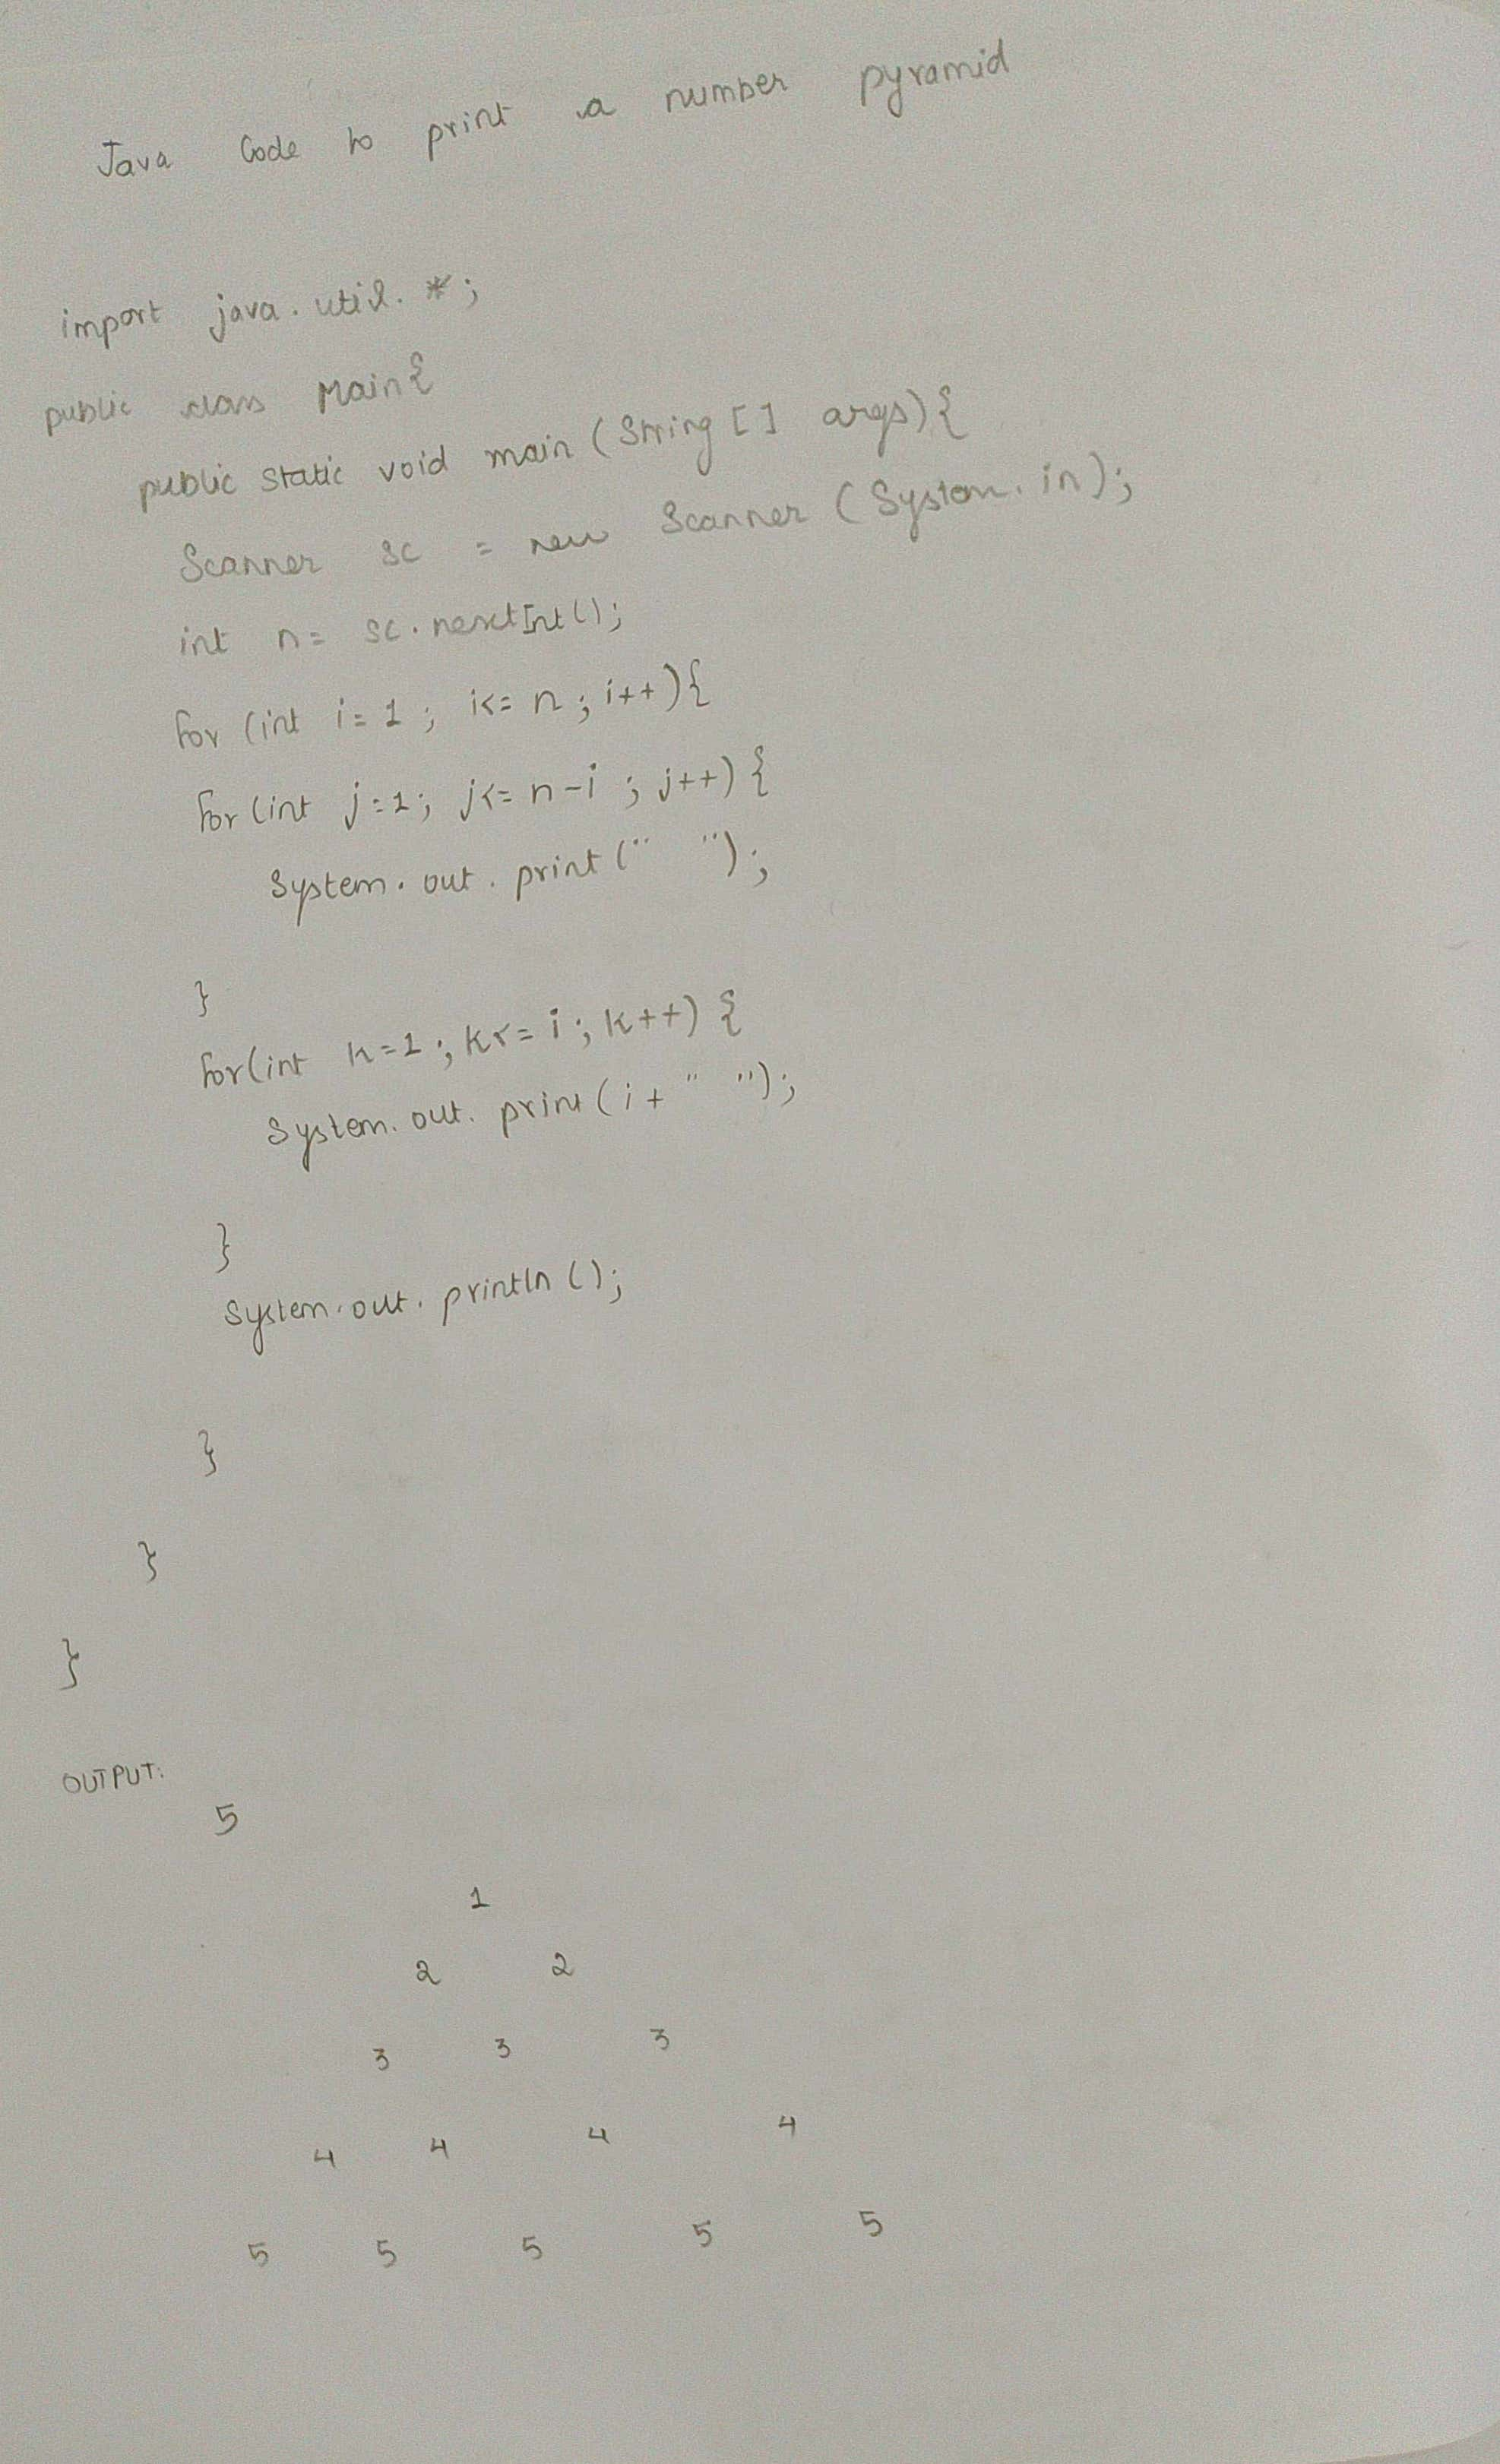 Java Code to print a number pyramid
import java.util.*;
public class Main{
public static void main (String [] args){
Scanner sc = new Scanner (System.in);
int n= sc.nextInt();
for (int i=1; i<= n; i++){
for (int j=1; j<= n-i; j++) {
System.out.print(" ");
}
for(int k=1; k<= i; k++) {
System.out.print(i+" ");
}
System.out.println();
}
}
}
OUTPUT:
5
1
2 2
3 3 3
4 4 4 4
5 5 5 5 5